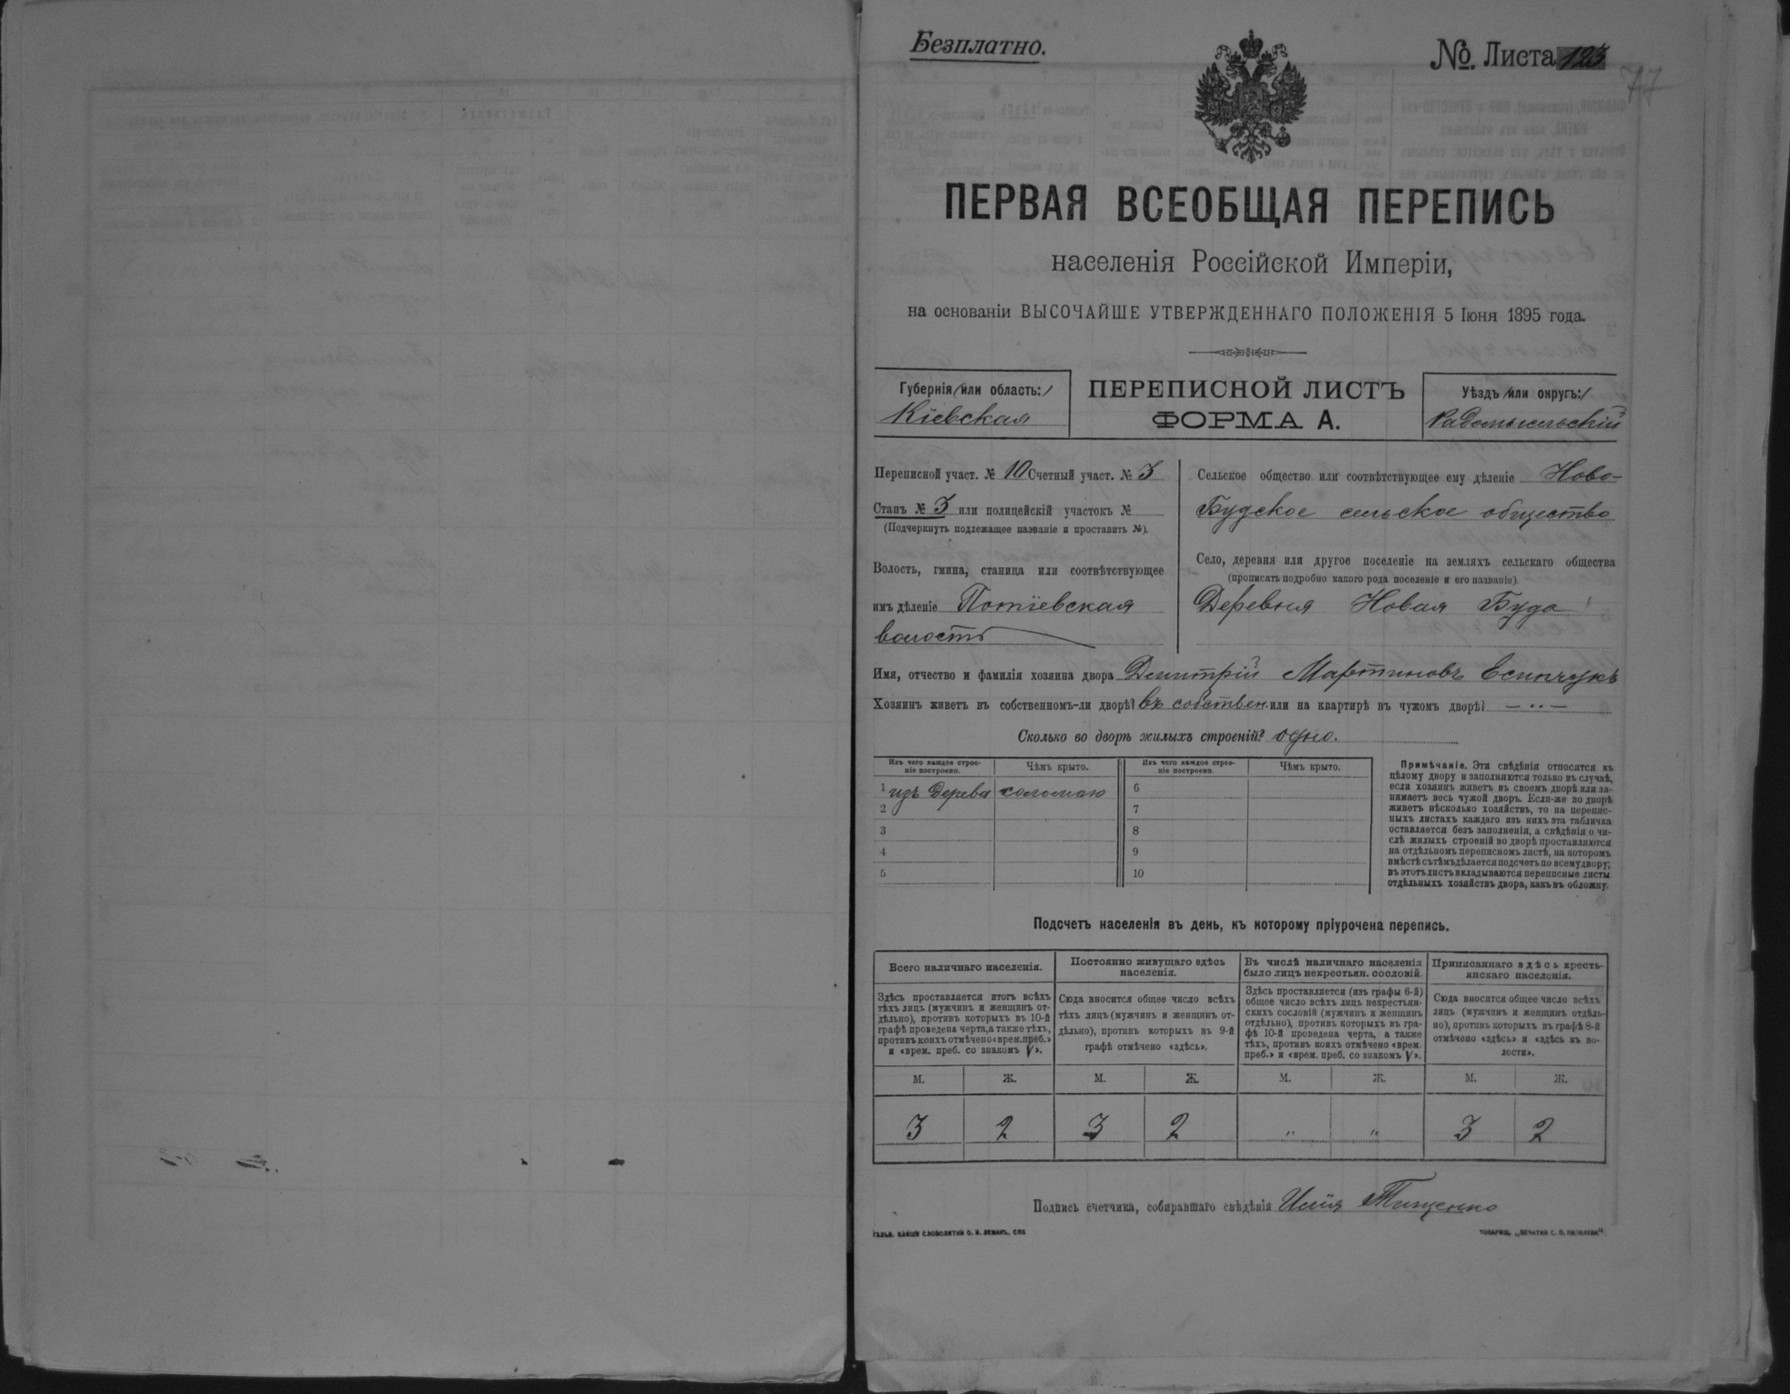 Безплатно.
№ Листа 123
77
ПЕРВАЯ ВСЕОБЩАЯ ПЕРЕПИСЬ
населенія Россійской Имперіи,
на основаніи ВЫСОЧАЙШЕ УТВЕРЖДЕННАГО ПОЛОЖЕНІЯ 5 Іюня 1895 года.
Губернія /или область:/
Кіевская
ПЕРЕПИСНОЙ ЛИСТЪ
ФОРМА А.
Уѣздъ /или округъ:/
Радомысльскій
Переписной участ. № 10 Счетный участ. № 3
Станъ № 3 или полицейскій участокъ №
(Подчеркнуть подлежащее названіе и проставить №).
Волость, гмина, станица или соотвѣтствующее
имъ дѣленіе Потіевская
волость
Сельское общество или соотвѣтствующее ему дѣленіе Ново-
Будское сельское общество
Село, деревня или другое поселеніе на земляхъ сельскаго общества
(прописать подробно какого рода поселеніе и его названіе)
Деревня Новая Буда
Имя, отчество и фамилія хозяина двора Дмитрій Мартиновъ Есипчукъ
Хозяинъ живетъ въ собственномъ-ли дворѣ? въ собствен. или на квартирѣ въ чужомъ дворѣ? — ,, —
Сколько во дворѣ жилыхъ строеній? одно.
Изъ чего каждое строе-
ніе построено.
Чѣмъ крыто.
Изъ чего каждое строе-
ніе построено.
Чѣмъ крыто.
1 изъ дерева соломою 6
2 7
3 8
4 9
5 10
Примѣчаніе. Эти свѣдѣнія относятся къ
цѣлому двору и заполняются только въ случаѣ,
если хозяинъ живетъ въ своемъ дворѣ или за-
нимаетъ весь чужой дворъ. Если-же во дворѣ
живетъ нѣсколько хозяйствъ, то на перепис-
ныхъ листахъ каждаго изъ нихъ эта табличка
оставляется безъ заполненія, а свѣдѣнія о чи-
слѣ жилыхъ строеній во дворѣ проставляются
на отдѣльномъ переписномъ листѣ, на которомъ
вмѣстѣ съ тѣмъ дѣлается подсчетъ по всему двору;
въ этотъ листъ вкладываются переписные листы
отдѣльныхъ хозяйствъ двора, какъ въ обложку.
Подсчетъ населенія въ день, къ которому пріурочена перепись.
Всего наличнаго населенія.
Здѣсь проставляется итогъ всѣхъ
тѣхъ лицъ (мужчинъ и женщинъ от-
дѣльно), противъ которыхъ въ 10-й
графѣ проведена черта, а также тѣхъ,
противъ коихъ отмѣчено «врем. преб.»
и «врем. преб. со знакомъ V».
Постоянно живущаго здѣсь
населенія.
Сюда вносится общее число всѣхъ
тѣхъ лицъ (мужчинъ и женщинъ от-
дѣльно), противъ которыхъ въ 9-й
графѣ отмѣчено «здѣсь».
Въ числѣ наличнаго населенія
было лицъ некрестьян. сословій.
Здѣсь проставляется (изъ графы 6-й)
общее число всѣхъ лицъ некрестьян-
скихъ сословій (мужчинъ и женщинъ
отдѣльно), противъ которыхъ въ гра-
фѣ 10-й проведена черта, а также
тѣхъ, противъ коихъ отмѣчено «врем.
преб.» и «врем. преб. со знакомъ V».
Приписаннаго здѣсь кресть-
янскаго населенія.
Сюда вносится общее число всѣхъ
лицъ (мужчинъ и женщинъ отдѣль-
но), противъ которыхъ въ графѣ 8-й
отмѣчено «здѣсь» и «здѣсь въ во-
лости».
М. Ж. М. Ж. М. Ж. М. Ж.
3 2 3 2 ,, ,, 3 2
Подпись счетчика, собиравшаго свѣдѣнія Илія Тищенко
ТОВАРИЩ. „ПЕЧАТНЯ С. П. ЯКОВЛЕВА“.